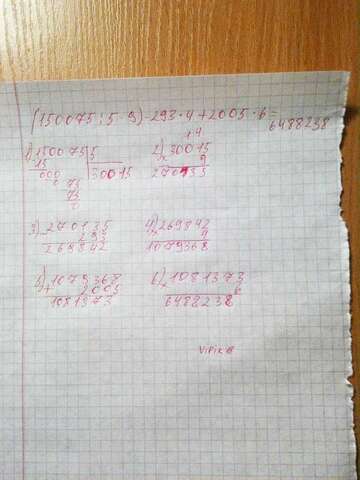 (150075:5·9)-293·4+2005·6=
6488238
1) 150075|5
15
30015
000
75
75
0
2) 30015
x 9
270135
3) 270135
- 293
269842
4) 269842
x 4
1079368
5) 1079368
+ 2005
1081373
6) 1081373
x 6
6488238